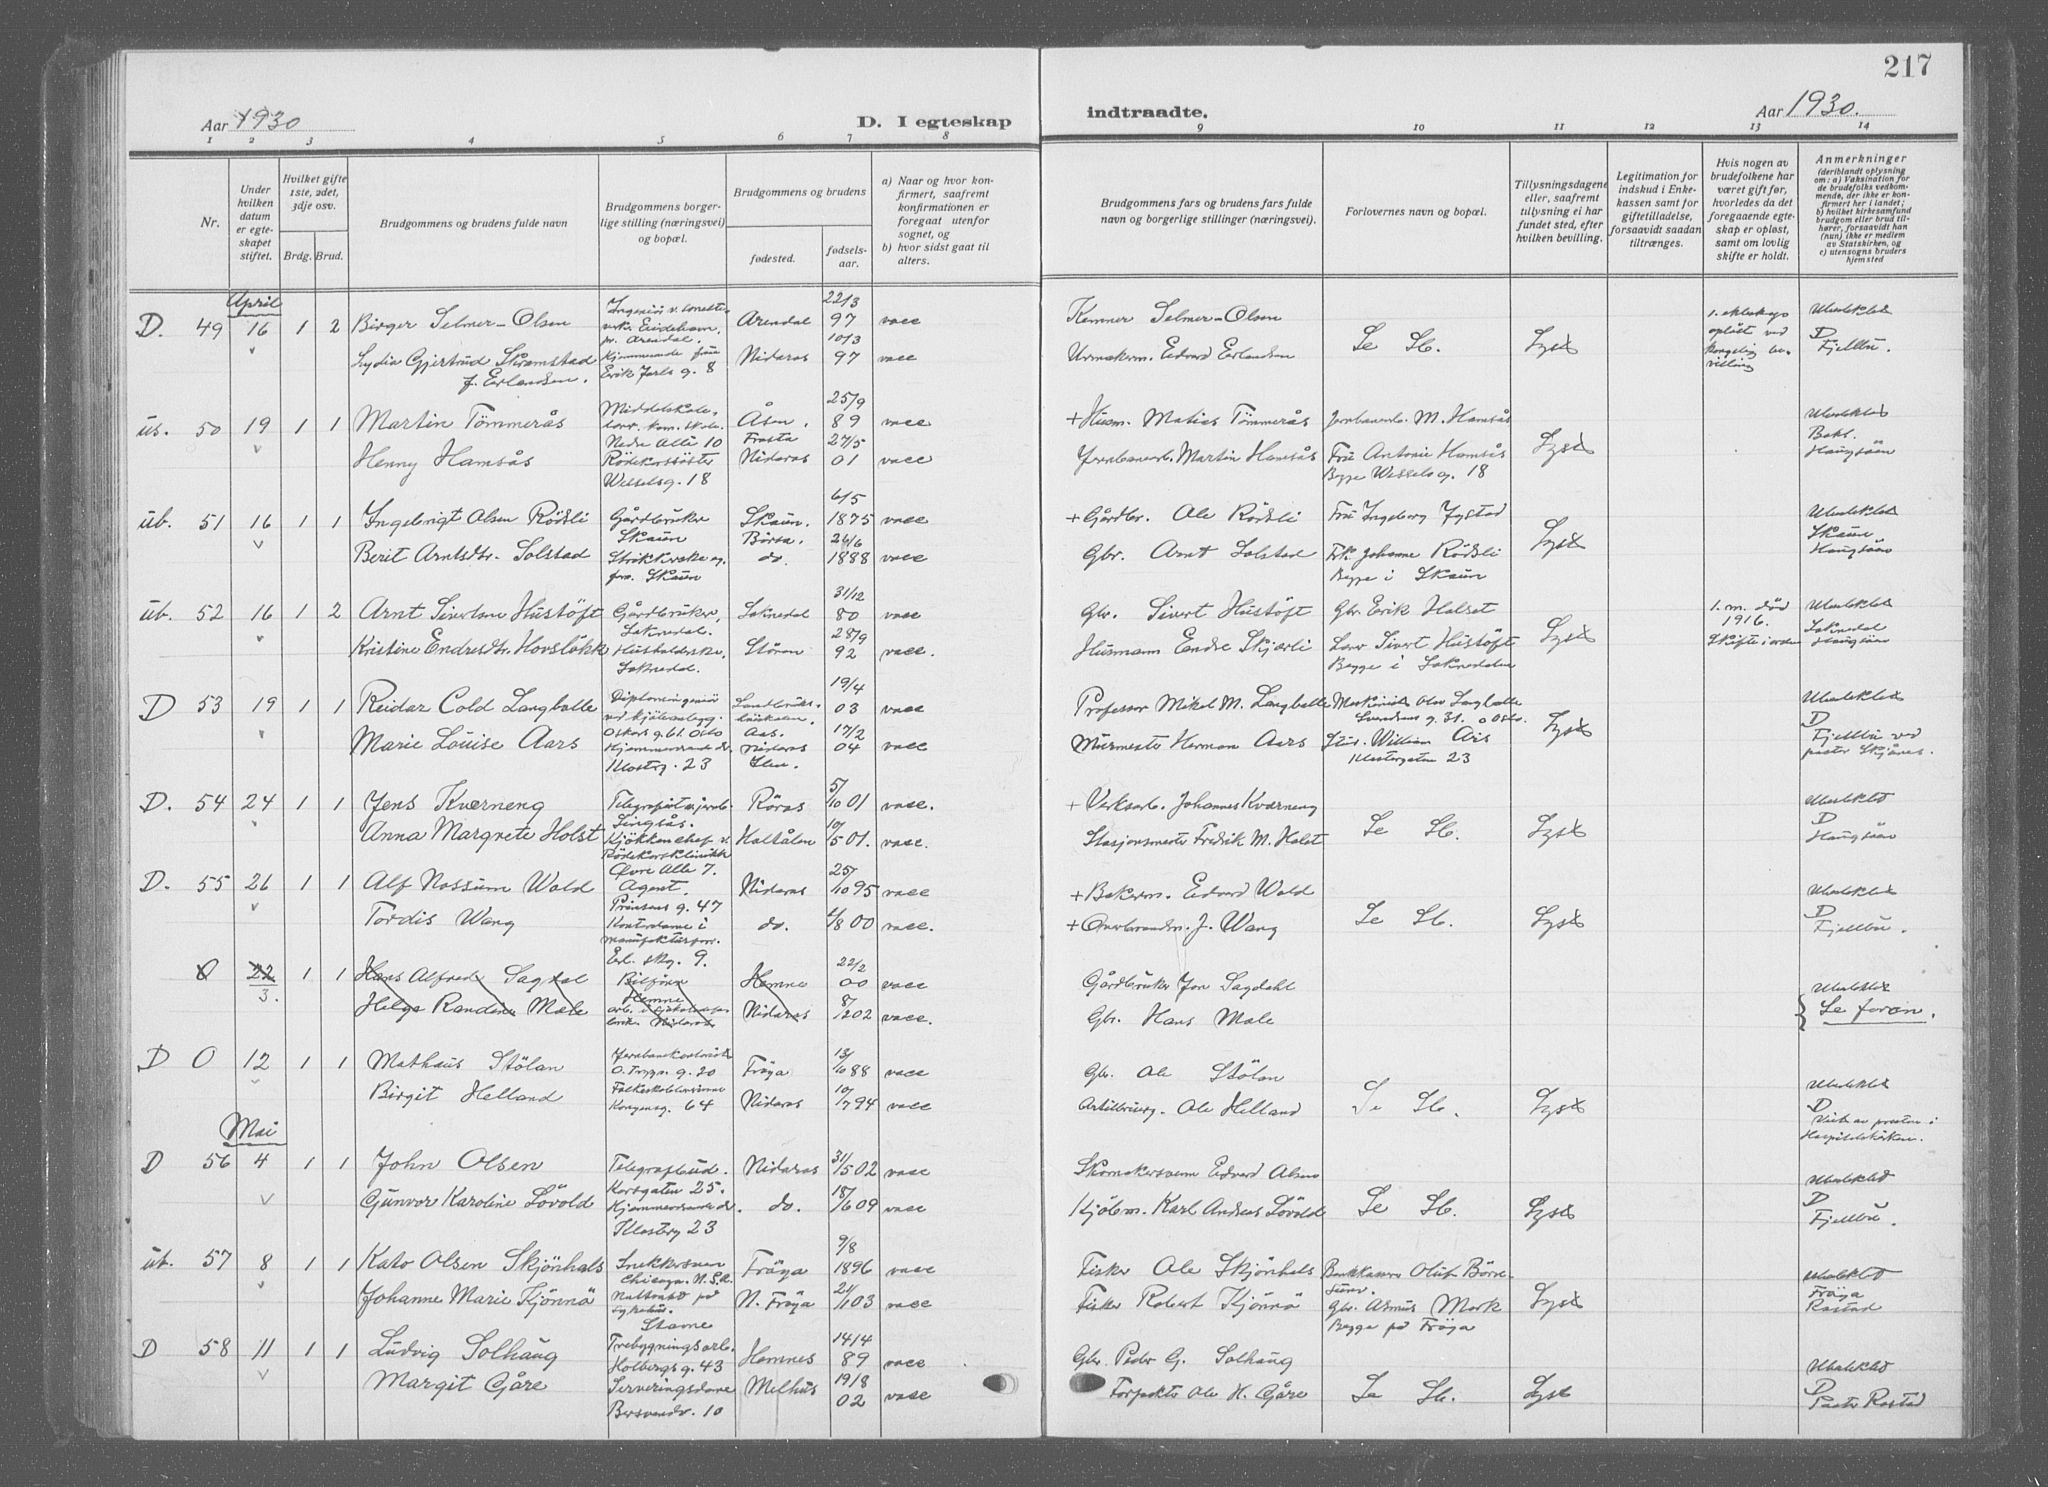 217
Aar 1930
D. I egteskap
indtraadte.
Aar 1930.
1 2 3 4 5 6 7 8 9 10 11 12 13 14
Nr.
Under hvilken datum er egteskapet stiftet.
Hvilket gifte 1ste, 2det, 3dje osv.
Brdg. Brud.
Brudgommens og brudens fulde navn
Brudgommens borgerlige stilling (næringsvei) og bopæl.
Brudgommens og brudens
fødested.
fødselsaar.
a) Naar og hvor konfirmert, saafremt konfirmationen er foregaat utenfor sognet, og
b) hvor sidst gaat til alters.
Brudgommens fars og brudens fars fulde navn og borgerlige stillinger (næringsvei).
Forlovernes navn og bopæl.
Tillysningsdagene eller, saafremt tillysning ei har fundet sted, efter hvilken bevilling.
Legitimation for indskud i Enkekassen samt for giftetilladelse, forsaavidt saadan tiltrænges.
Hvis nogen av brudefolkene har været gift før, hvorledes da det foregaaende egteskap er opløst, samt om lovlig skifte er holdt.
Anmerkninger (deriblandt oplysning om: a) Vaksination for de brudefolks vedkommende, der ikke er konfirmert her i landet; b) hvilket kirkesamfund brudgom eller brud tilhører, forsaavidt han (hun) ikke er medlem av Statskirken, og c) utensogns bruders hjemsted
April
D. 49 16 1 2 Birger Selmer-Olsen Arendal 22/3 97 vacc Kemner Selmer-Olsen
Lydia Gjertrud Skramstad f. Erlandsen. Erik Jarls g. 8 Nidaros 10/3 97 vacc Urmakerm. Edvard Erlandsen Se Sb. Lyst Fjellbu.
us. 50 19 1 1 Martin Tömmerås Nedre Allé 10 Åsen, Frosta 25/9 89 vacc + Husm. Matias Tömmerås M. Hamsås
Henny Hamsås Rödekorssöster Wesselsg. 18 Nidaros 27/5 01 vacc Jernbanearb. Martin Hamsås Fru Antonie Hamsås Begge Wesselsg. 18 Lyst Haugsöen
ub. 51 16 1 1 Ingebrigt Olsen Rödsli Gårdbruker Skaun Skaun, Börsa. 6/5 1875 vacc + Gårdbr. Ole Rödsli Fru Ingeborg Jystad
Berit Arntsdtr. Solstad Skaun do. 26/6 1888 vacc Gbr. Arnt Solstad Frk. Johanne Rödsli Begge i Skaun Lyst Skaun Haugsöen
ub. 52 16 1 2 Arnt Sivertsen Hustöft Gårdbruker, Soknedal. Soknedal 31/12 80 vacc Gbr. Sivert Hustöft Gbr. Erik Halset 1. m. död 1916.
Kristine Endresdtr. Hovslökk Husholderske, Soknedal. Stören 28/9 92 vacc. Husmann Endre Skjærli Sivert Hustöft Begge i Soknedalen Lyst Soknedal Haugsöen
D 53 19 1 1 Reidar Cold Langballe Oskars g. 61. Oslo Aas. 19/4 03 vacc Professor Mikal M. Langballe
Marie Louise Aars Hjemmeværende dt. Klosterg. 23 Nidaros Ilen. 17/2 04 vacc Murmester Herman Aars Stud. William Aars Klostergaten 23 Lyst Fjellbu ved pastor Skjånes.
D. 54 24 1 1 Jens Kværneng Singsås. Röros 5/10 01 vacc. + Verksarb. Johannes Kværneng
Anna Margrete Holst Kjökkenchef v. Rödekorsklinikk Övre Alle 7. Haltålen 10/5 01. vacc. Stasjonsmester Fredrik M. Holst Se Sb. Lyst Haugsöen
D. 55 26 1 1 Alf Nossum Wold Agent, Prinsens g. 47 Nidaros 25/10 95 vacc + Bakerm. Edvard Wold
Tordis Wang Kontordame i manufakturforr. Erl. skg. 9. do. 4/8 00 vacc. + Overbrandm. J. Wang Se Sb. Lyst Fjellbu.
0 22/3. 1 1 Hans Alfred Sagdal Bilförer Hemne Hemne 22/2 00 vacc Gårdbruker Jon Sagdahl
Helga Randine Mæle Nidaros Nidaros 8/12 02 vacc. Gbr. Hans Mæle Se foran.
D 0 12 1 1 Mathæus Stölan O. Trygv. g. 20 Fröya 13/10 88 vacc Gbr. Ole Stölan
Birgit Helland Folkeskolelærerinne Kongensg. 64 Nidaros 10/7 94 vacc Ole Helland Se Sb. Lyst Hospitalskirken.
Mai
D 56 4 1 1 John Olsen Telegrafbud. Korsgaten 25. Nidaros 31/5 02 vacc Skomakersvenn Edvard Olsen
Gunvor Karoline Lövold Hjemmeværende dt. Klosterg 23 do. 18/6 09 vacc Kjölm. Karl Andreas Lövold Se Sb. Lyst Fjellbu.
ub. 57 8 1 1 Kato Olsen Skjönhals Snekkersvenn Chicago. Fröya 9/8 1896 vacc Fisker Ole Skjönhals Oluf Börösund.
Johanne Marie Kjönnö N. Fröya 21/1 03 vacc Fisker Robert Kjönnö Gbr. Asmus Mork Begge på Fröya Lyst Fröya Rostad
D 58 11 1 1 Ludvig Solhaug Holbergs g. 43 Hemnes 14/4 89 vacc Gbr. Peder G. Solhaug
Margit Gåre Serveringsdame Bersvendv. 10 Melhus 19/8 02 vacc Forpakter Ole H. Gåre Se Sb. Lyst Pastor Rostad